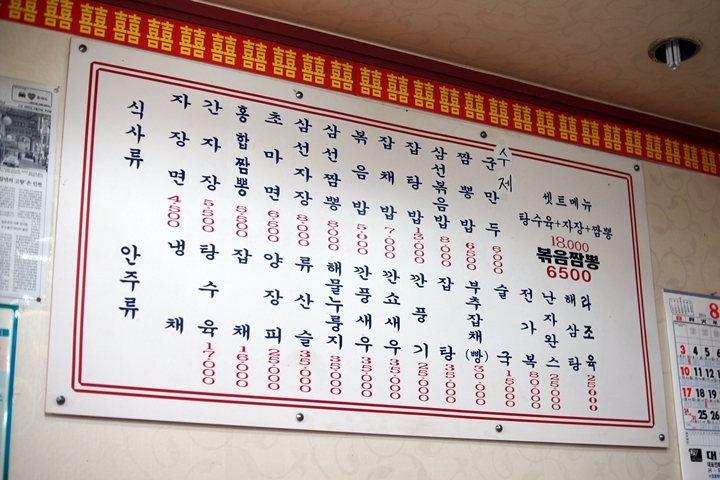 식사류
자장면 4.500
간자장 5.500
홍합짬뽕 5.500
초마면 6.500
삼선자장 8.000
삼선짬뽕 8.000
볶음밥 5.000
잡채밥 7.000
잡탕밥 13.000
삼선볶음밥 8.000
짬뽕밥 6500
수제
군만두 6.000
셋트메뉴
탕수육+자장+짬뽕
18.000
볶음짬뽕
6500
안주류
냉채
탕수육 17.000
잡채 15.000
양장피 25.000
류산슬 35.000
해물누룽지 35.000
깐풍새우 35.000
깐쇼새우 35.000
깐풍기 25.000
잡탕 35.000
부추잡채(빵) 30.000
술국 15.000
전가복 80.000
난자완스 25.000
해삼탕
라조육 25000
8
3 4
10 11
17 18
25